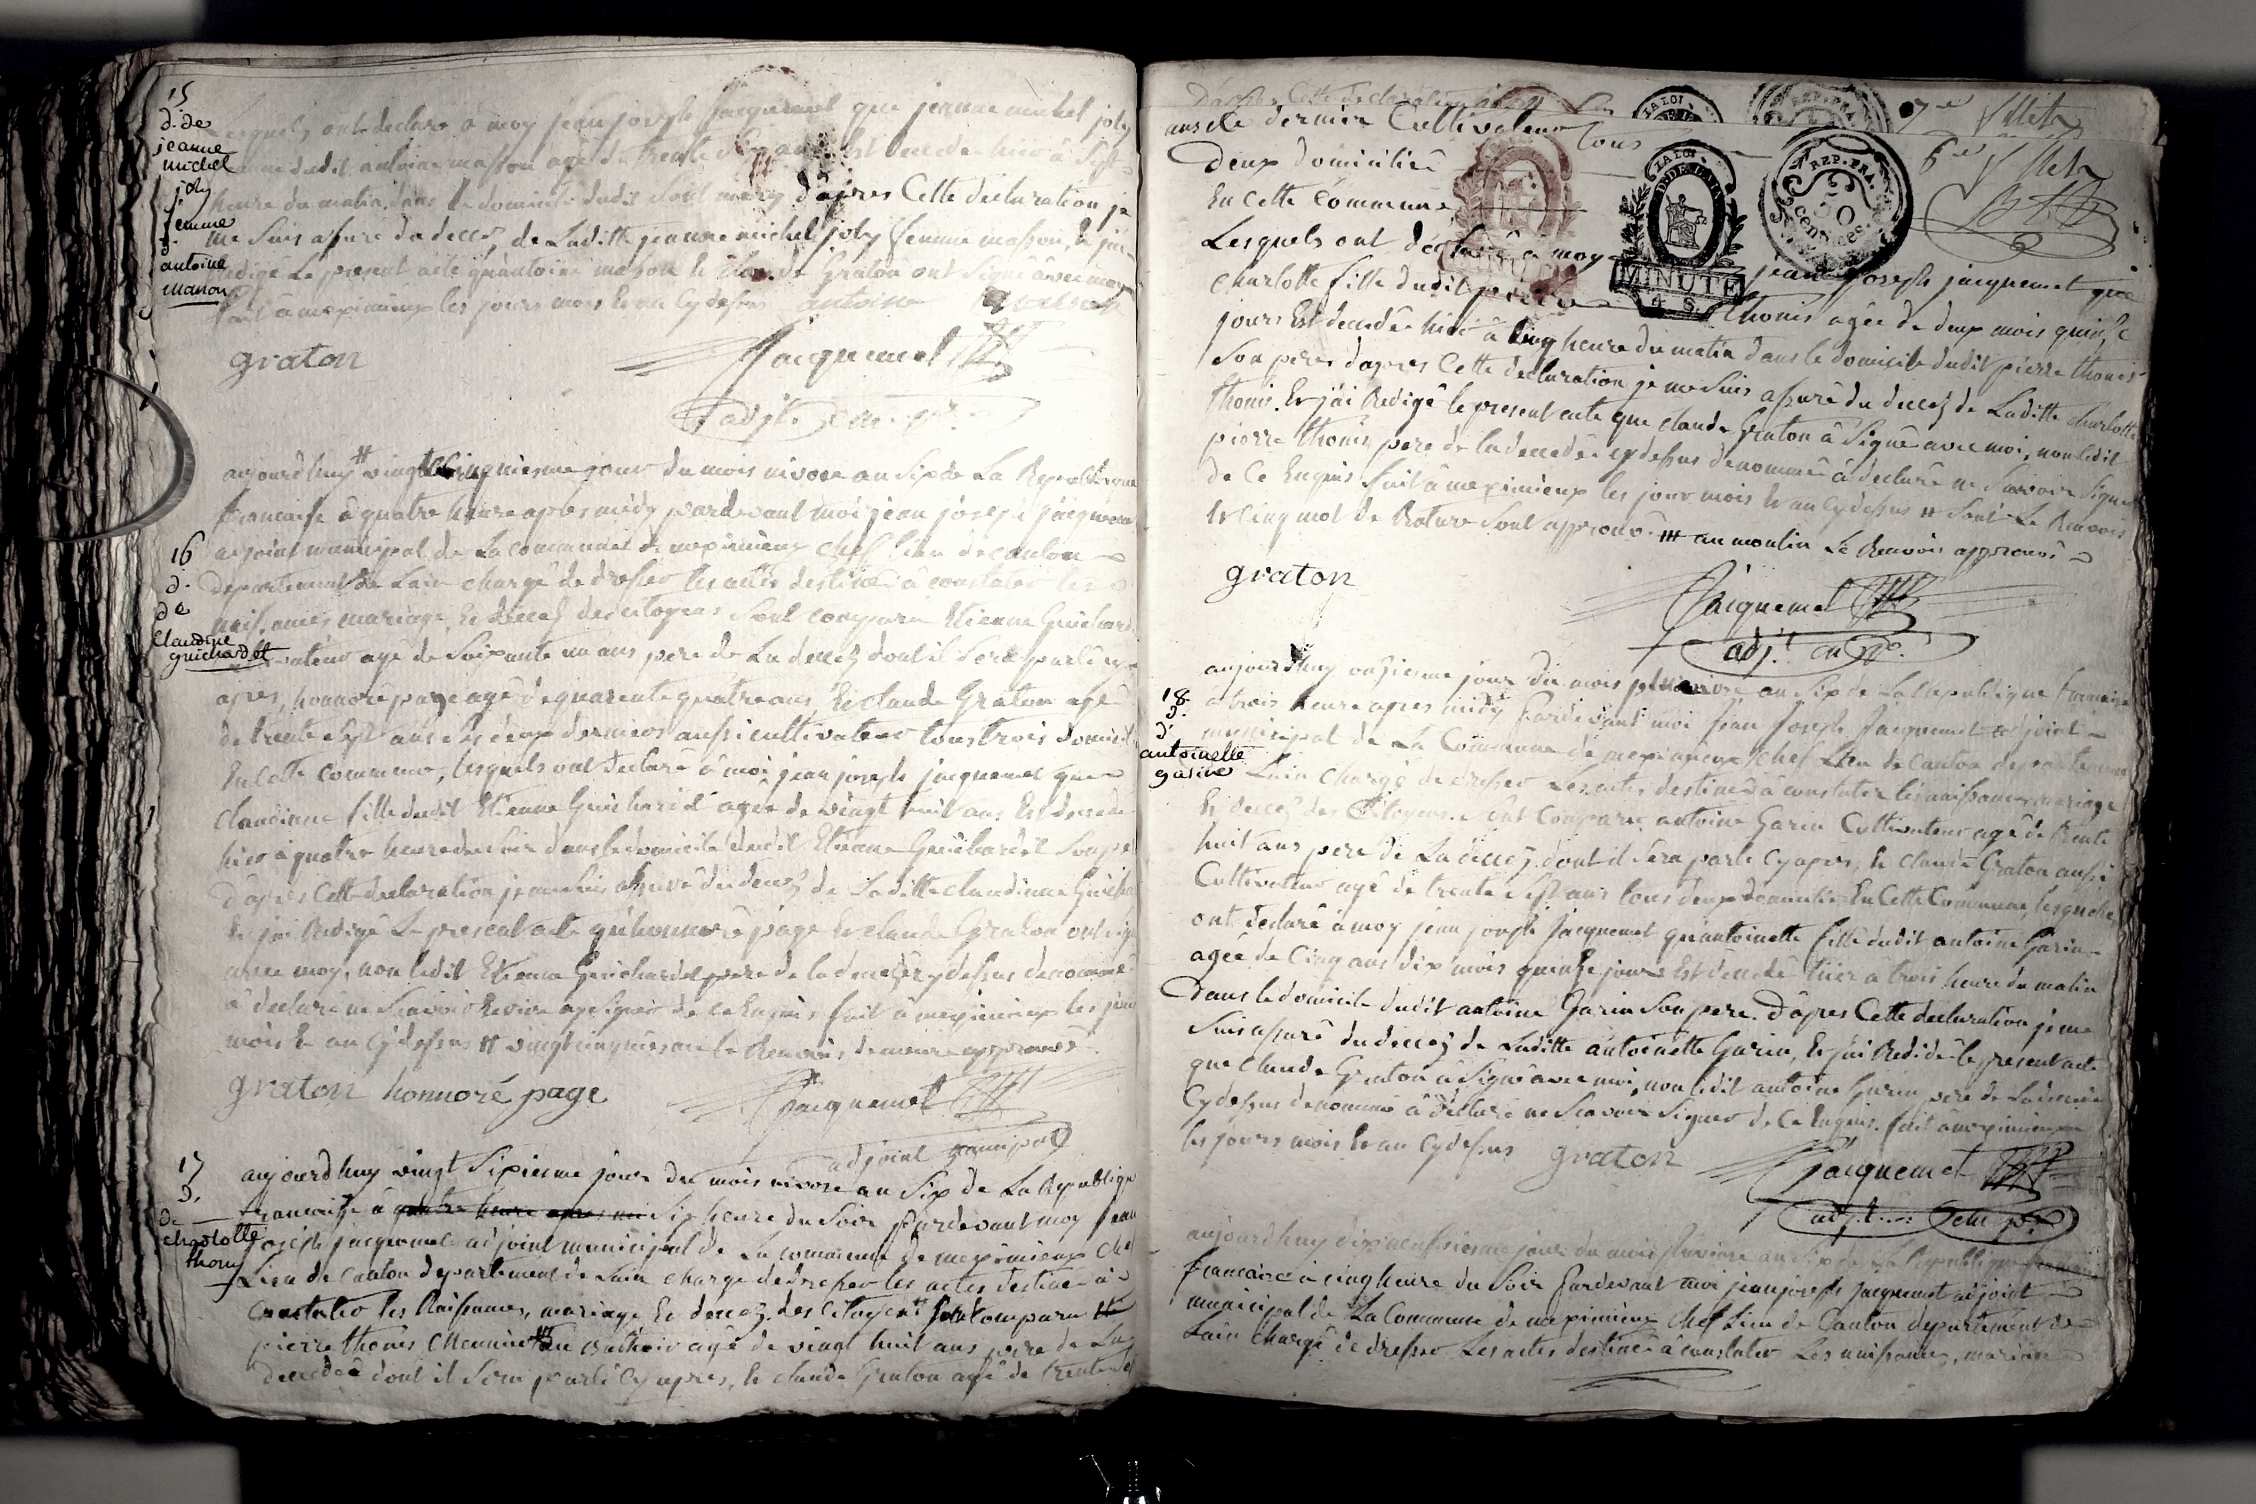 15
d. de
jeanne
michel
joly
femme
d.
antoine
masson
Lesquels ont declaré à moy jean joseph jacquemet que jeanne michel joly
femme dudit antoine masson agé de trente sept ans est decedée hier à sept
heure du matin dans le domicile dudit d'apres Cette declaration je
me suis assuré du decez de Laditte jeanne michel joly femme masson, et j'ai
redigé Le present acte qu'antoine masson et Claude Graton ont signé avec moy
fait à meximieux les jours mois et an Cydessus antoine masson
graton
Jacquemet
adjt
16
d.
de
Claudine
guichardet
aujourd'huy # vingt Cinquiesme jour du mois nivose an Six de La Republique
francaise à quatre heure après midy pardevant moi jean joseph jacquemet
adjoint municipal de La commune de meximieux chef lieu de canton
departement de Lain chargé de dresser les actes destiné à constater les
naissances mariage Et decez des citoyens sont comparu Etienne Guichardet
cultivateur agé de soixante un ans pere de La decez dont il sera parlé cy
apres, honnoré page agé de quarente quatre ans, Et claude Graton agé
de trente sept ans les deux derniers aussi cultivateur tous trois domicilié
En Cette commune, lesquels ont declaré à moi jean joseph jacquemet que
Claudinne fille dudit Etienne Guichardet agée de vingt huit ans Est decedé
hier à quatre heure du soir dans le domicile dudit Etienne Guichardet son pere
d'apres Cette declaration je me suis assuré du decez de Laditte claudinne Guichardet
Et j'ai Redigé Le present acte qu'honnoré page et claude Graton ont signé
avec moy, non ledit Etienne Guichardet pere de la decedée cydessus denommé
à declaré ne scavoir signer de ce Enquis fait à meximieux les jour
mois Et an Cydessus # vingt cinquiesme le Renvois approuvé
graton honnoré page
Jacquemet
adjoint municipal
17
d.
de
charlotte
thonis
aujourdhuy vingt sixiesme jour du mois nivose an six de La Republique
francaise à quatre heure apres mi six heure du soir pardevant moy jean
joseph jacquemet adjoint municipal de La commune de meximieux chef
Lieu de canton departement de Lain chargé de dresser les actes destiné à
constater les Naissances, mariage Et decez des citoyens sont comparu
pierre thonis meunier agé de vingt huit ans pere de La
decedée dont il sera parlé Cy apres, et claude Graton agé de trente sept
ans Ce dernier Cultivateur tous
deux domicilié
En Cette Commune
Lesquels ont déclaré à moy jean joseph jacquemet que
charlotte fille dudit pierre thonis agée de deux mois quinze
jours Est decedée hier à cinq heure du matin dans le domicile dudit pierre thonis
son pere, d'apres Cette declaration je me suis assuré du decez de Laditte charlotte
thonis. Et j'ai Redigé le present acte que claude Graton à signé avec moi, non ledit
pierre thonis pere de la decedée cydessus denommé à declaré ne savoir signer
de Ce Enquis fait à meximieux les jour mois Et an Cydessus # sont Le Renvois
Et Cinq mot de Rature sont approuvé ### au moulin Le Renvois approuvé
7e
6e
LA LOI
REP. FRA.
LA LOI
MINUTE
4 S.
REP. FRA.
50
centimes
graton
Jacquemet
adjt
18
d.
d'
antoinette
garin
aujourdhuy onziesme jour du mois pluviose an six de La Republique francaise
à trois heure apres midy pardevant moi jean joseph jacquemet adjoint
municipal de La Commune de meximieux chef Lieu de canton departement
de Lain chargé de dresser Les actes destiné à constater les naissances mariage
Et decez des Citoyens. sont Comparu antoine Garin Cultivateur agé de trente
huit ans pere de La decez dont il sera parlé Cy apres, Et claude Graton aussi
Cultivateur agé de trente sept ans tous deux domicilié En Cette Commune, lesquels
ont declaré à moy jean joseph jacquemet qu'antoinette fille dudit antoine Garin
agée de Cinq ans dix mois quinze jours Est decedé hier à trois heure du matin
Dans le domicile dudit antoine Garin son pere. D'apres Cette declaration je me
suis assuré du decez de Laditte antoinette Garin, Et j'ai Redigé le present acte
que claude Graton à signé avec moi, non ledit antoine Garin pere de La decedée
Cydessus denommé à declaré ne scavoir signer de Ce Enquis. fait à meximieux
les jours mois Et an Cydessus graton
Jacquemet
adjt
aujourdhuy dixneufviesme jour du mois pluviose an six de La Republique
francaise à cinq heure du soir pardevant moi jean joseph jacquemet adjoint
municipal de La Commune de meximieux chef Lieu de Canton departement de
Lain chargé de dresser Les actes destiné à constater Les naissances, mariage